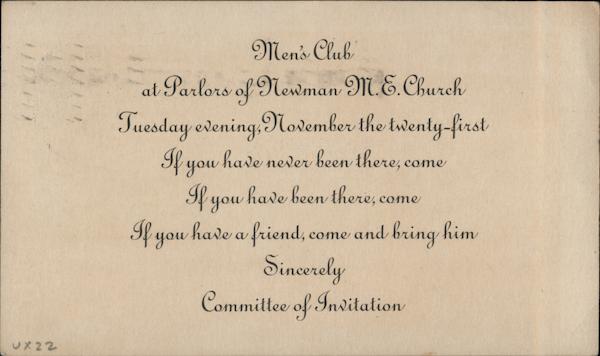 Men's Club
at Parlors of Newman M.E. Church
Tuesday evening, November the twenty-first
If you have never been there, come
If you have been there, come
If you have a friend, come and bring him
Sincerely
Committee of Invitation
UX22